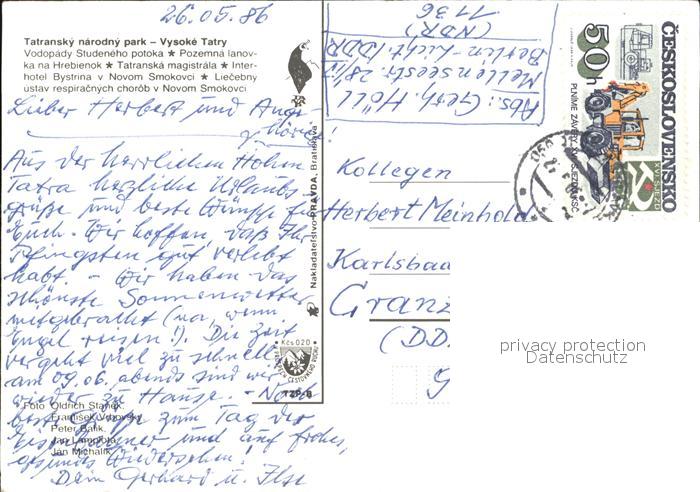 26.05.86
Tatranský národný park – Vysoké Tatry
Vodopády Studeného potoka ★ Pozemná lanov-
ka na Hrebienok ★ Tatranská magistrála ★ Inter-
hotel Bystrina v Novom Smokovci ★ Liečebný
ústav respiračných chorôb v Novom Smokovci
Lieber Herbert und Ange-
hörige
Aus der herrlichen Hohen
Tatra herzliche Urlaubs-
grüße und beste Wünsche für
Euch. Wir hoffen, daß Ihr
Pfingsten gut verlebt
habt. – Wir haben das
schönste Sonnenwetter
mitgebracht (na, wenn
Engel reisen!). Die Zeit
vergeht viel zu schnell
am 09.06. abends sind wir
wieder zu Hause. – Noch
beste Grüße zum Tag der
Eisenbahner und auf frohes,
gesundes Wiedersehen!
Dein Gerhard u. Ilse
Foto Oldřich Staněk,
František Vrbovský
Peter Balík,
Ján Lamplota
Ján Michalík
Nakladateľstvo PRAVDA, Bratislava
Kčs 0,20
Abs: Gerh. Höll
Mellenseestr. 28/
Berlin-Licht. DDR
(NDR)
1136
ČESKOSLOVENSKO
50 h
PLNÍME ZÁVĚRY
Kollegen
Herbert Meinhold
Karlsbad
Granz
(D.D.
privacy protection
Datenschutz